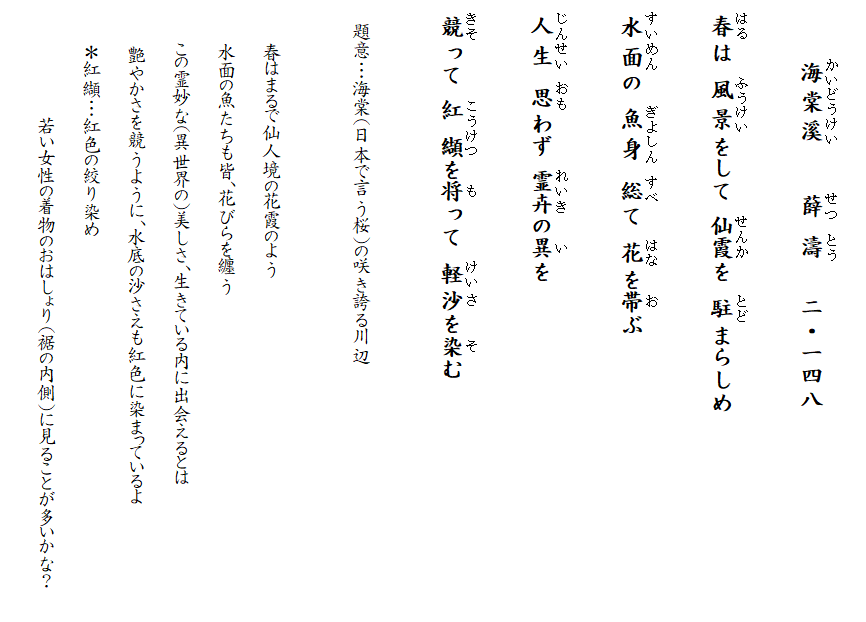 海棠溪 薛濤 二・一四八
かいどうけい せつ とう
春は 風景をして 仙霞を 駐まらしめ
はる ふうけい せんか とど
水面の 魚身 総て 花を帯ぶ
すいめん ぎよしん すべ はな お
人生 思わず 霊卉の異を
じんせい おも れいき い
競って 紅纈を将って 軽沙を染む
きそ こうけつ も けいさ そ
題意…海棠(日本で言う桜)の咲き誇る川辺
春はまるで仙人境の花霞のよう
水面の魚たちも皆、花びらを纏う
この霊妙な(異世界の)美しさ、生きている内に出会えるとは
艶やかさを競うように、水底の沙さえも紅色に染まっているよ
＊紅纈…紅色の絞り染め
若い女性の着物のおはしょり(裾の内側)に見ることが多いかな？